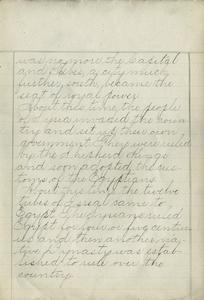 was no more the capital
and Thebes, a city much
further south, became the
seat of royal power.
About this time, the people
of Syria invaded the coun
try and set up their own
government. They were ruled
by the Shepherd Kings
and soon adopted the cus
toms of the Egyptians.
About this time the twelve
tribes of Israel came to
Egypt. The Syrians ruled
Egypt for four or five centur
ies and then another na
tive dynasty was estab
lished to rule over the
country.